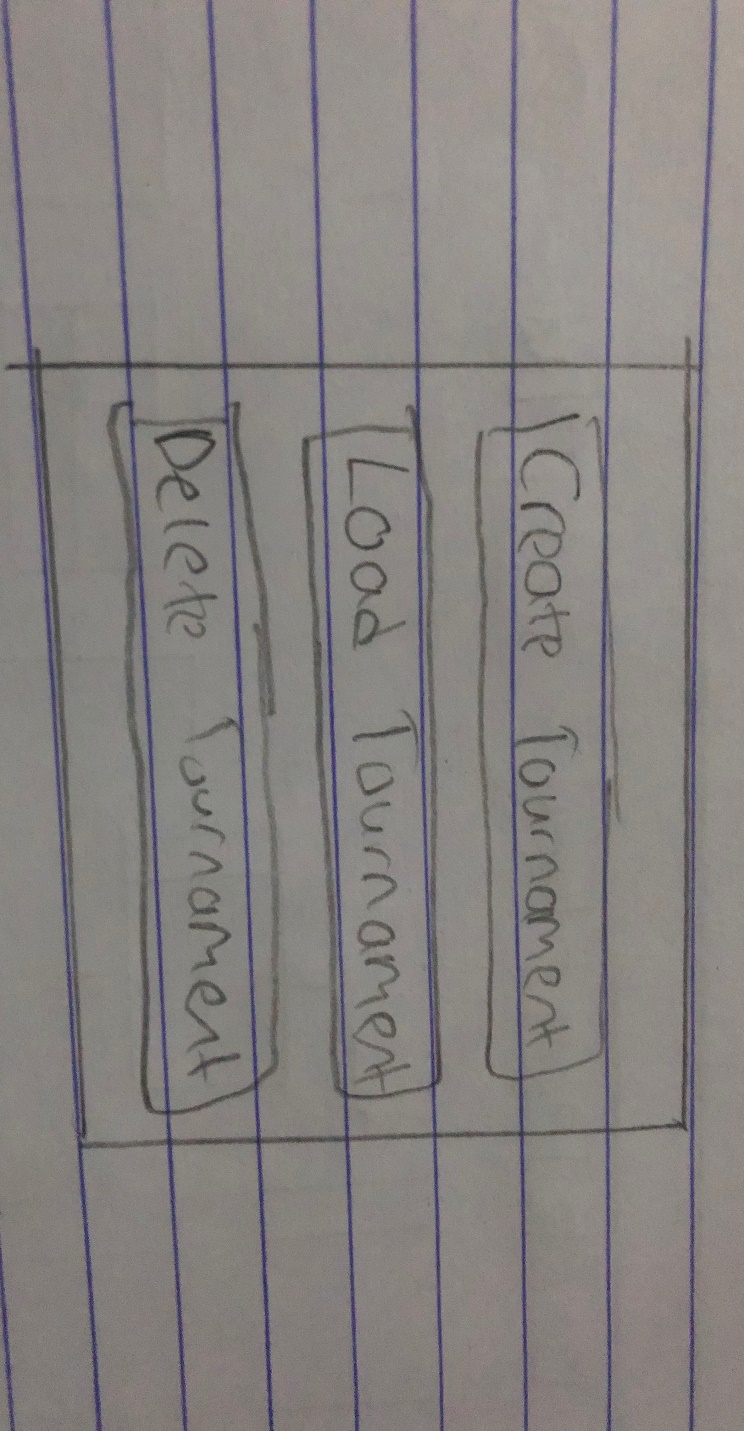 Create Tournament
Load Tournament
Delete Tournament